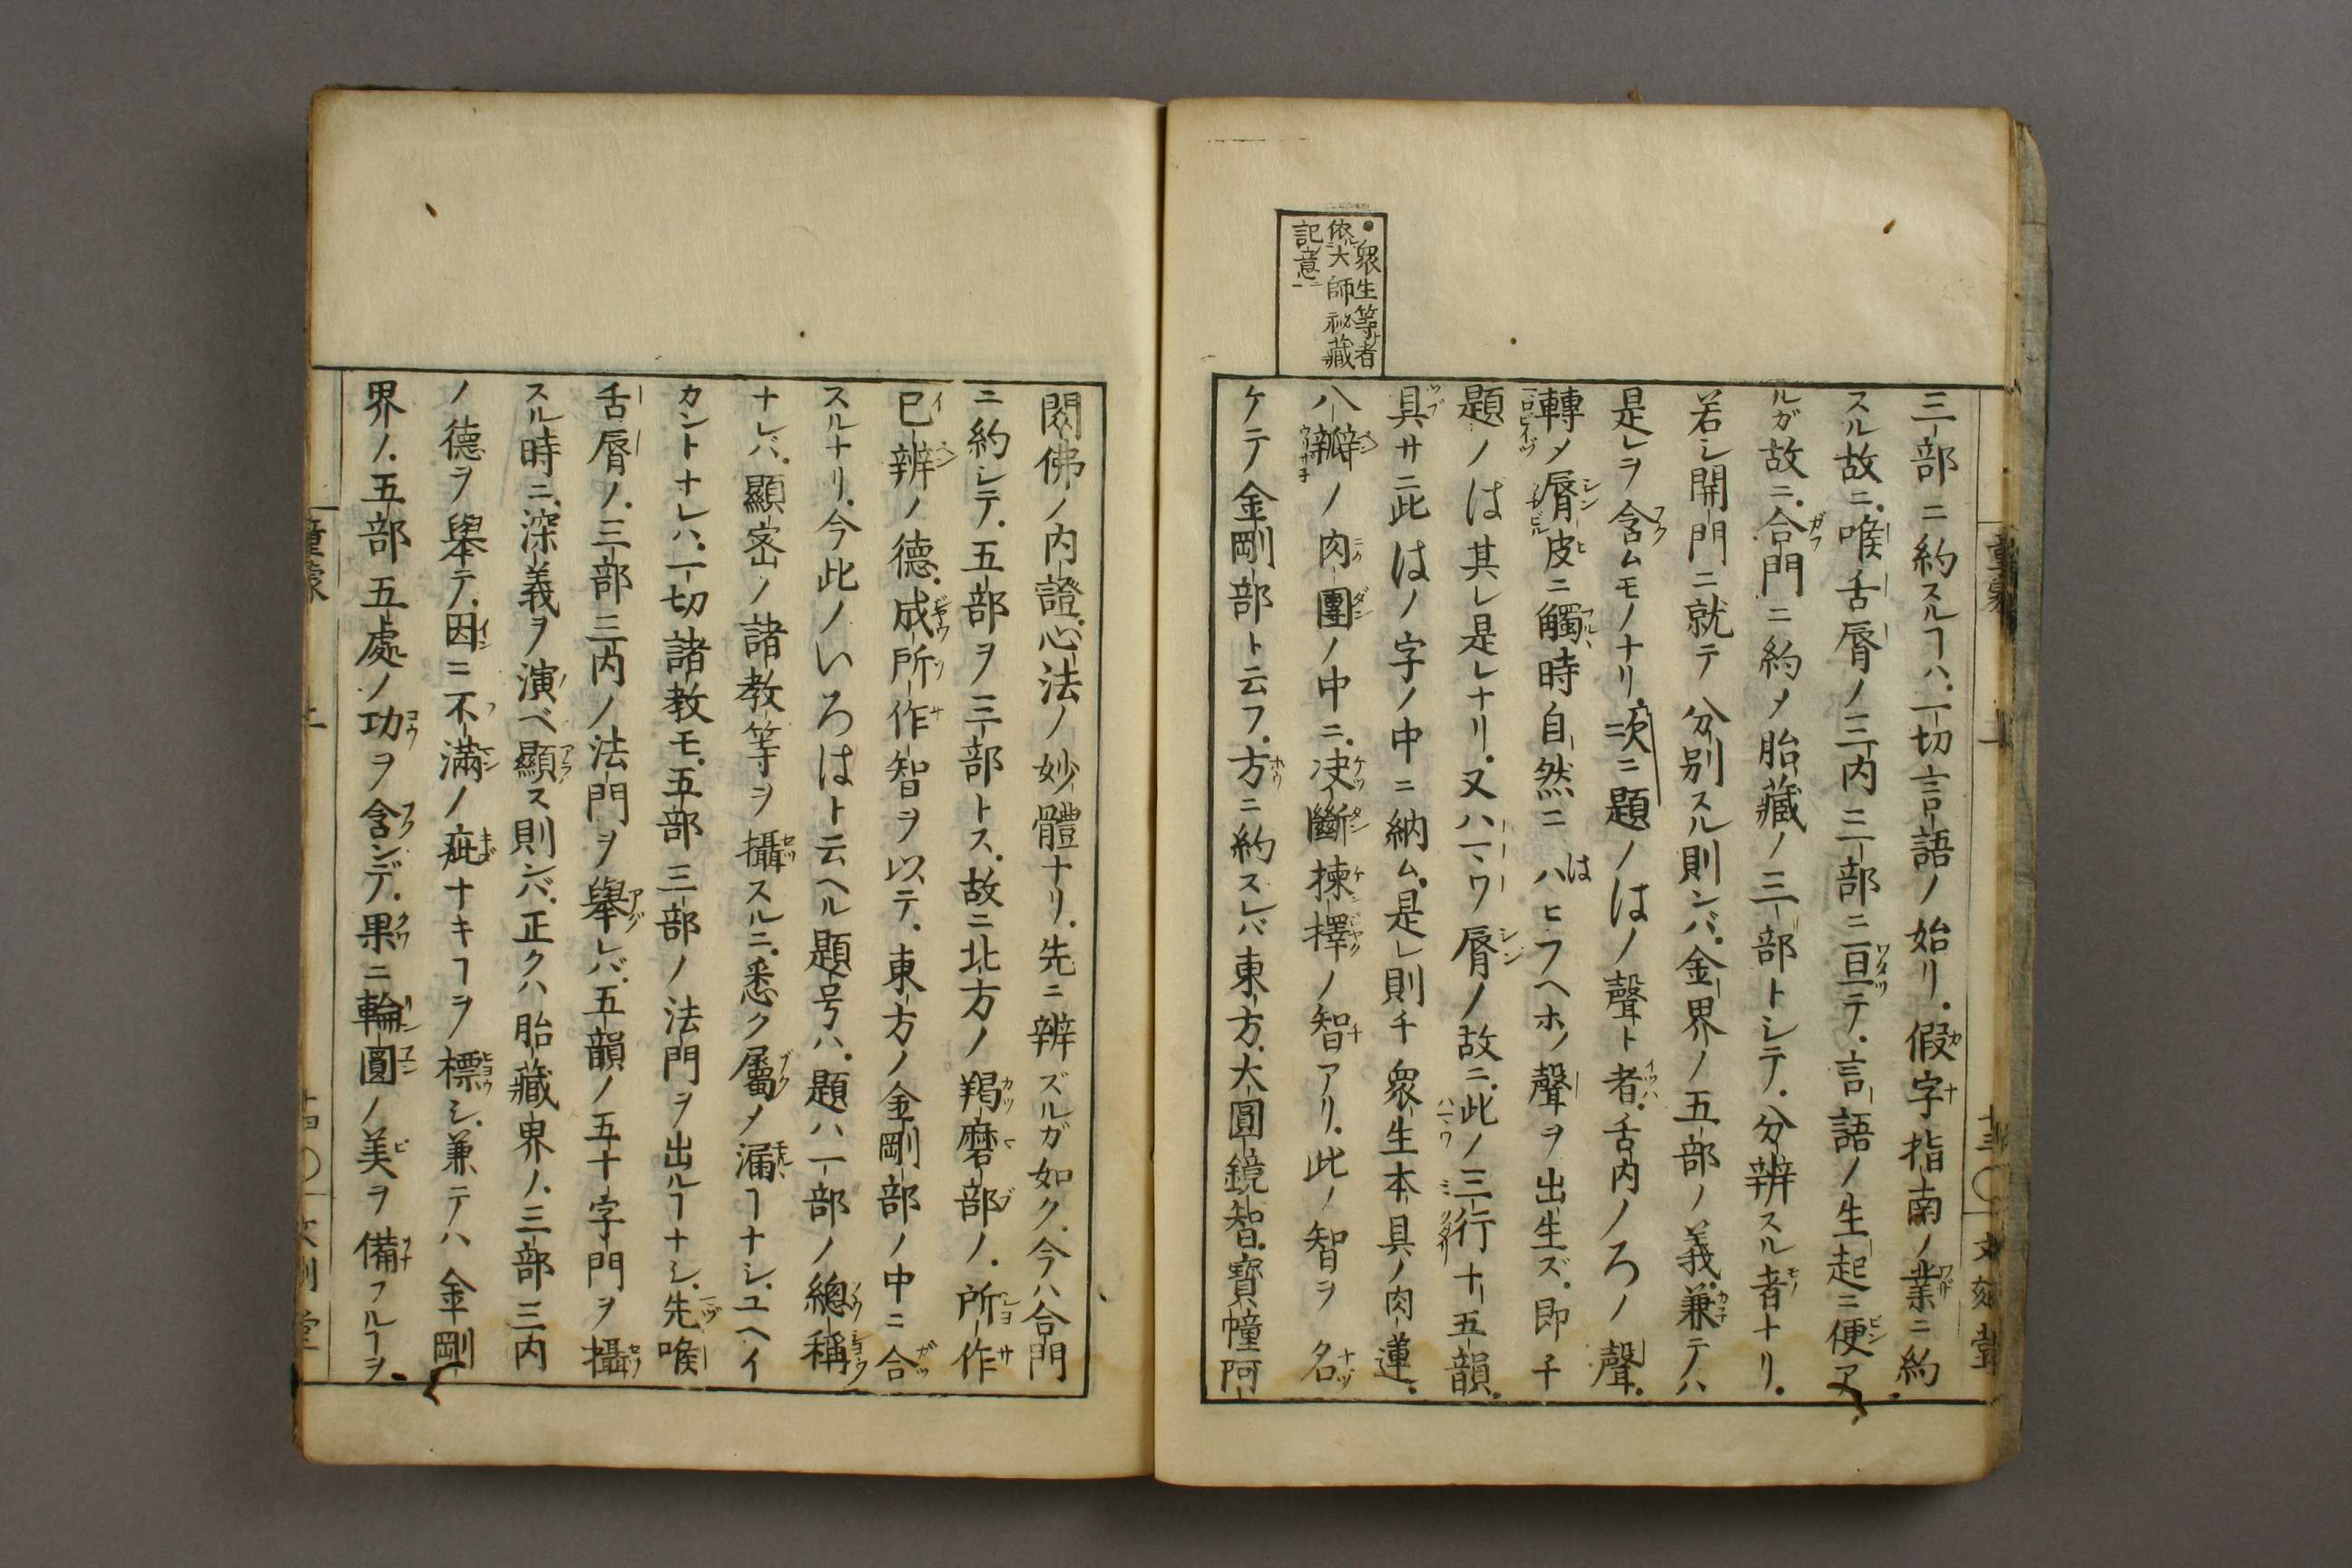 三部ニ約スルヿハ一切言語ノ始リ假字指南ノ業ニ約
スル故ニ喉舌脣ノ三内三部ニ亘テ言語ノ生起ニ便ア
ルガ故ニ合門ニ約メ胎藏ノ三部トシテ分辨スル者ナリ
若シ開門ニ就テ分別スル則ンバ金界ノ五部ノ義兼テハ
是レヲ含ムモノナリ次ニ題ノはノ聲ト者舌内ノろノ聲
轉メ脣皮ニ觸時自然ニハヒフヘホノ聲ヲ出生ズ即チ
題ノは其レ是レナリ又ハ一ワ脣ノ故ニ此ノ三行十五韻
具サニ此はノ字ノ中ニ納ム是レ則チ衆生本具ノ肉蓮
八瓣ノ肉團ノ中ニ决斷揀擇ノ智アリ此ノ智ヲ名
ケテ金剛部ト云フ方ニ約スレバ東方大圓鏡智寶幢阿
衆生等者
依大師祕藏
記意
童蒙
十三
文刻堂
閦佛ノ内證心法ノ妙體ナリ先ニ辨ズルガ如ク今ハ合門
ニ約シテ五部ヲ三部トス故ニ北方ノ羯磨部ノ所作
已辨ノ德成所作智ヲ以テ東方ノ金剛部ノ中ニ合
スルナリ今此ノいろはト云ヘル題号ハ題ハ一部ノ總稱
ナレバ顯密ノ諸教等ヲ攝スルニ悉ク屬メ漏ヿナシユヘイ
カントナレハ一切諸教モ五部三部ノ法門ヲ出ルヿナシ先喉
舌脣ノ三部三内ノ法門ヲ擧レバ五韻ノ五十字門ヲ攝
スル時ニ深義ヲ演ベ顯ス則ンバ正クハ胎藏界ノ三部三内
ノ德ヲ擧テ因ニ不滿ノ疵ナキヿヲ標シ兼テハ金剛
界ノ五部五處ノ功ヲ含ンデ果ニ輪圓ノ美ヲ備フルヿヲ